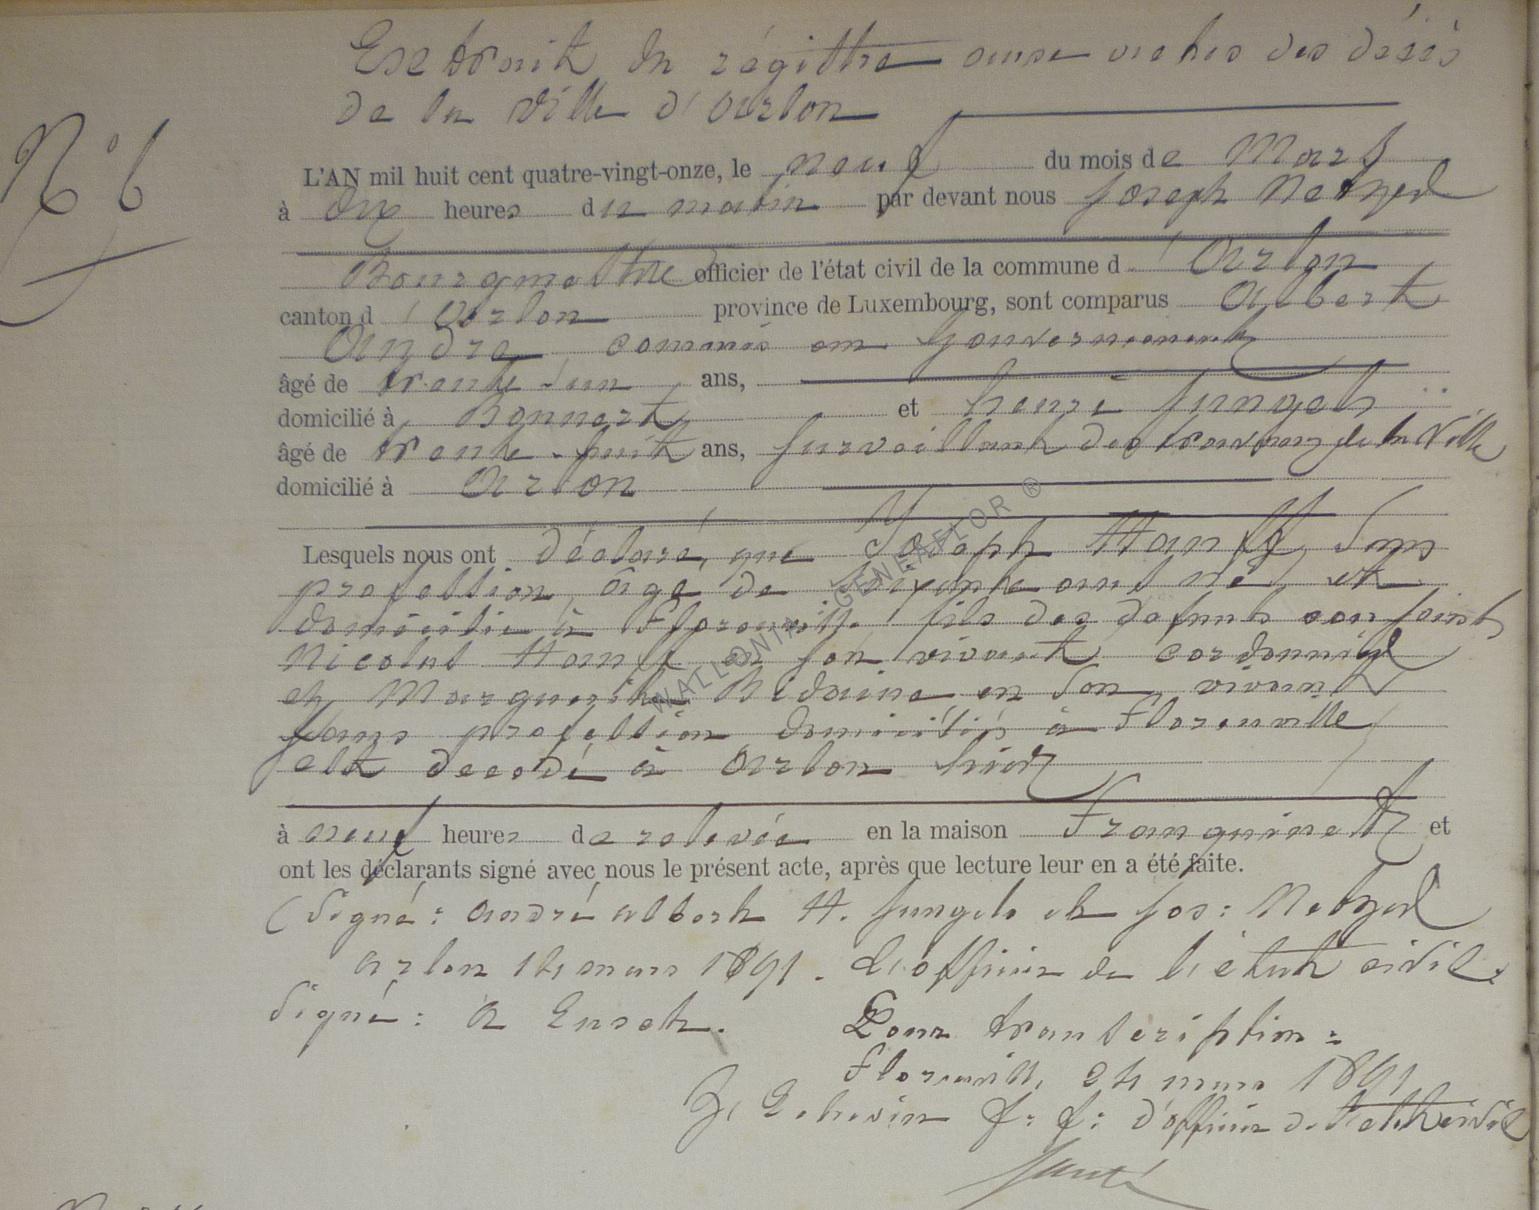 Extrait du régistre aux actes des décès
de la ville d'Arlon
N° 6
L'AN mil huit cent quatre-vingt-onze, le neuf du mois de Mars
à dix heures du matin par devant nous Joseph Netzer
Bourgmestre officier de l'état civil de la commune d'Arlon
canton d'Arlon province de Luxembourg, sont comparus Albert
André, commis au Gouvernement
âgé de trente-un ans,
domicilié à Bonnert et henri Jungels
âgé de trente-huit ans, surveillant des travaux de la Ville
domicilié à Arlon
Lesquels nous ont déclaré, que Joseph Hanff, sans
profession, âgé de soixante ans né, et
domicilié à Florenville fils des défunts conjoints
Nicolas Hanff en son vivant cordonnier
et Marguerite en son vivant
sans profession domiciliés à Florenville
est decedé à Arlon hier
à neuf heures de relevée en la maison Franquinet et
ont les déclarants signé avec nous le présent acte, après que lecture leur en a été faite.
(Signé: André Albert H. Jungels et Jos: Netzer
Arlon 14 mars 1891. L'officier de l'état civil.
Signé: A Ensch.
Pour transcription:
Florenville, 24 mars 1891
L'Echevin f: f: d'officier de l'état civil
WALLONIA GENEALOR ®